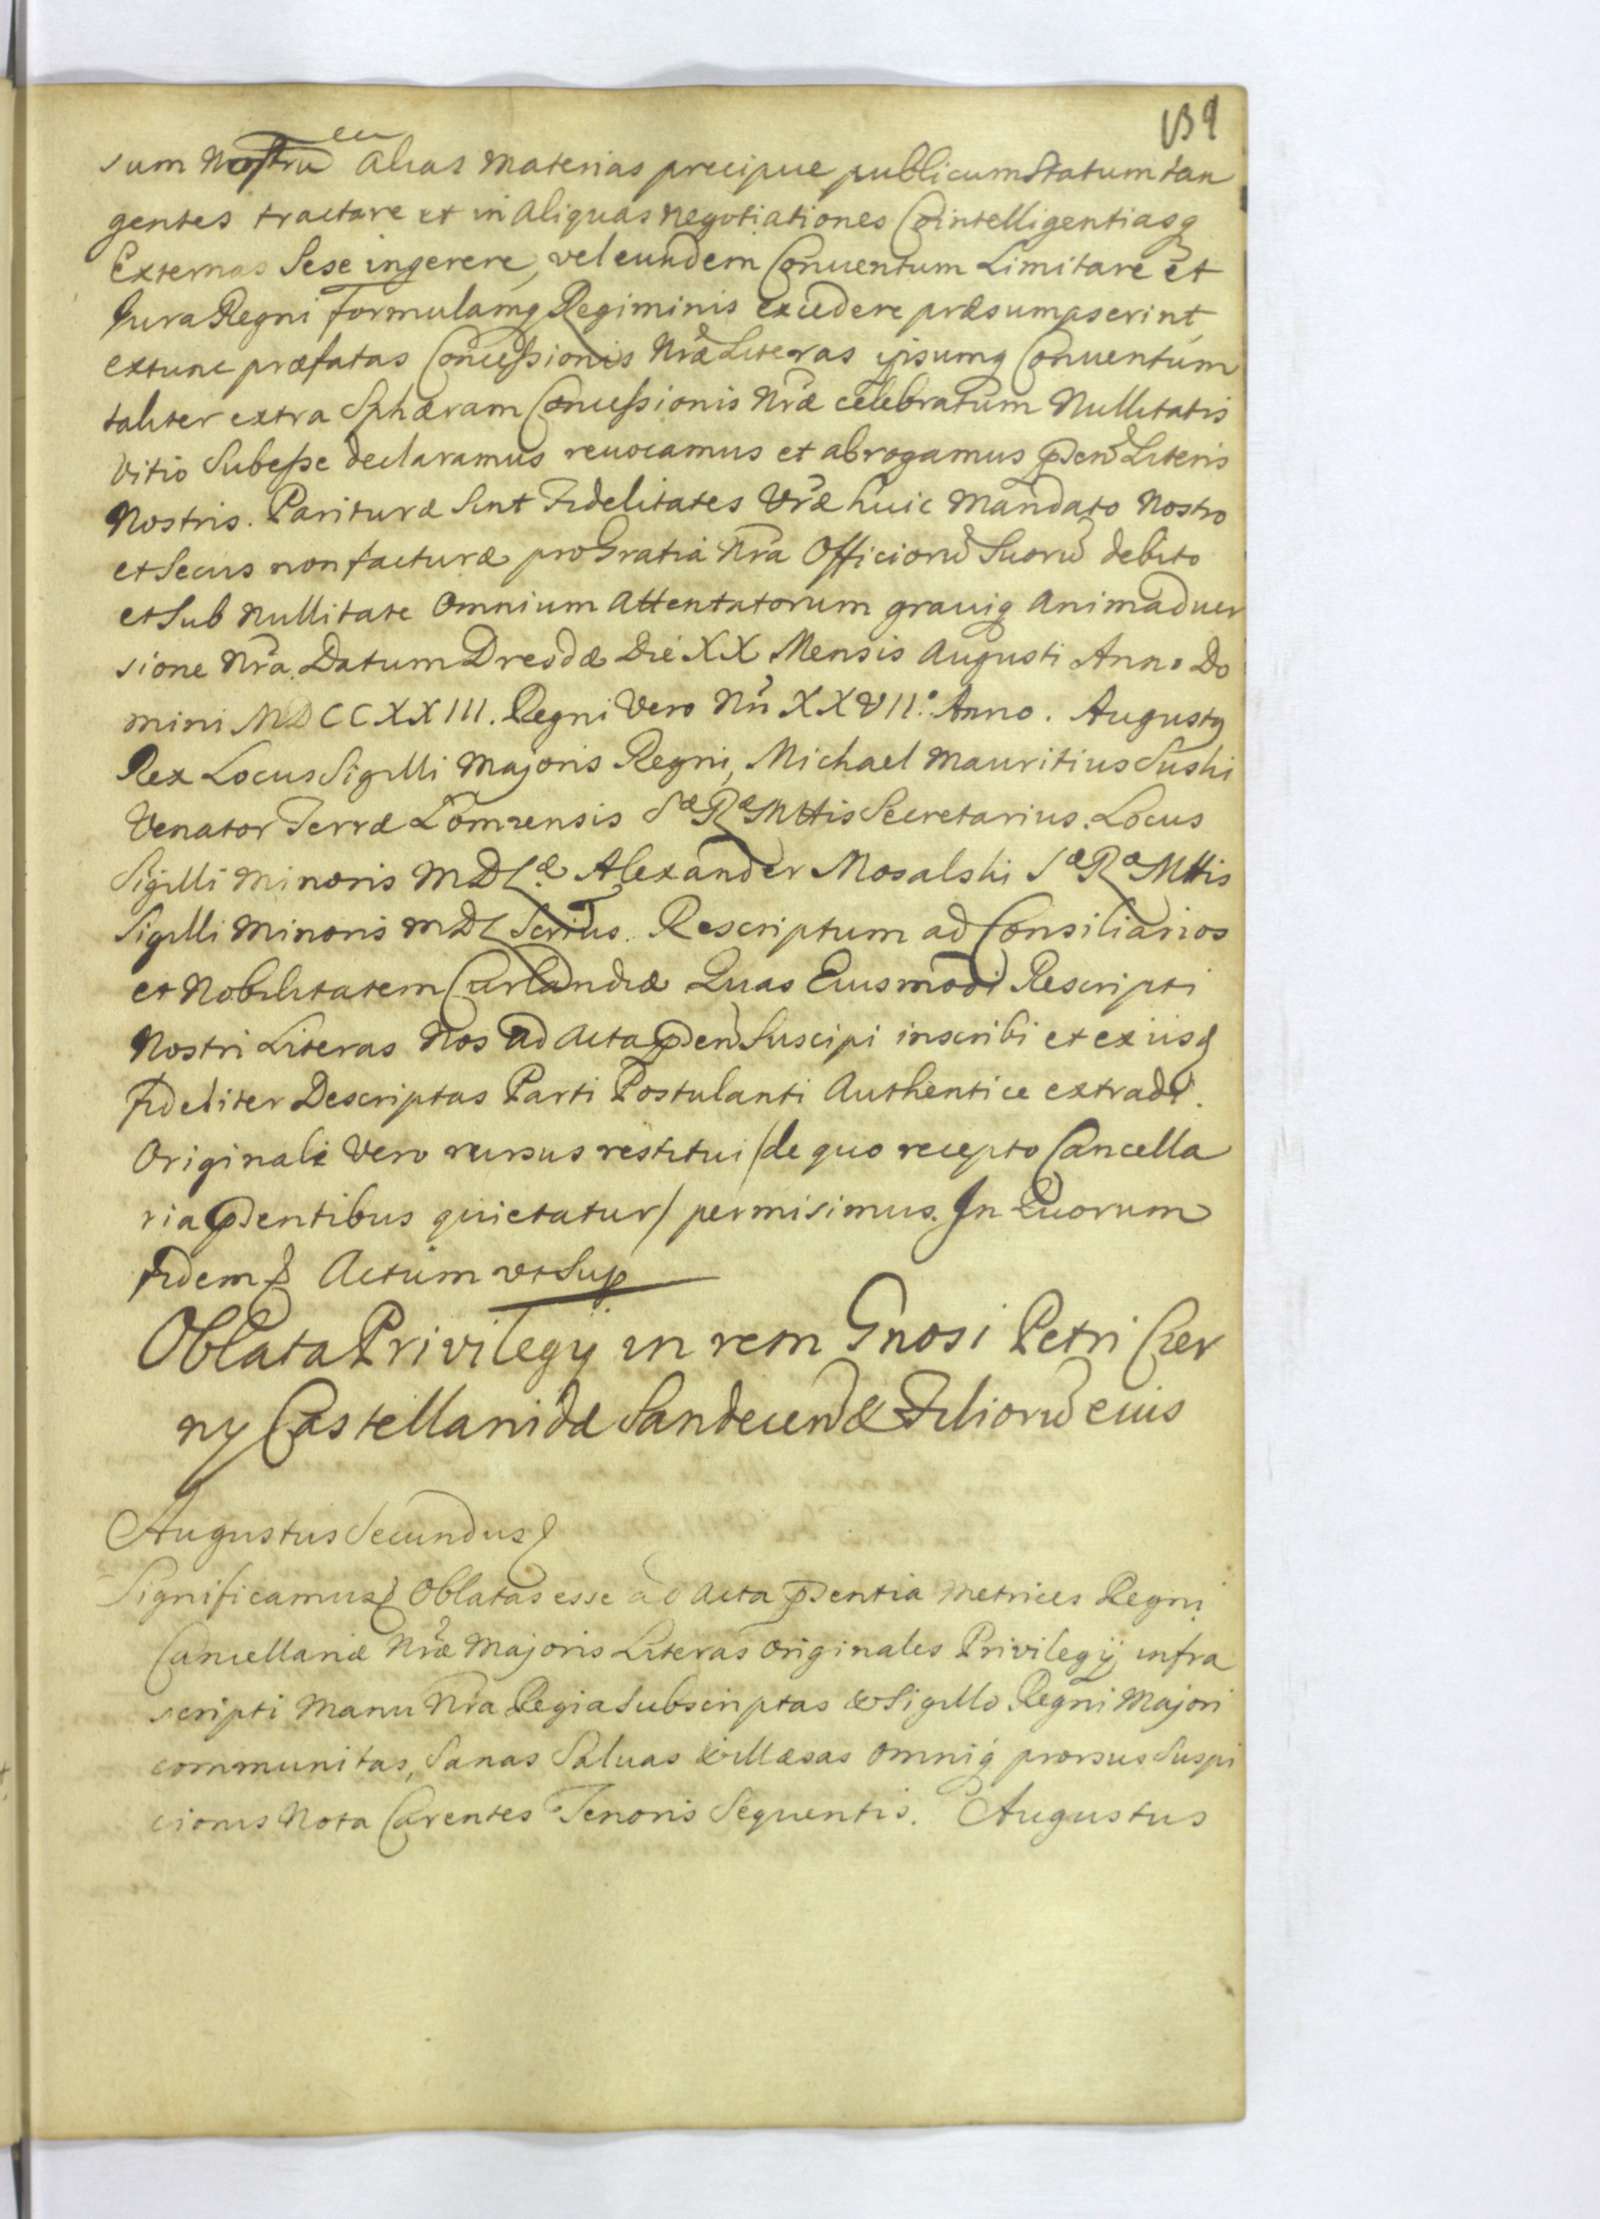 139
sum Nostru eu alias materias precipue publicum Statum tan
gentes tractare et in aliquas negotiationes Cointelligentiasq
Externas Sese ingerere, vel eundem Conuentum Limitare et
Jura Regni formulamq Regiminis excedere præsumpserint
extunc præfatas Concessionis Nræ Literas ipsumq Conuentum
taliter extra Sphæram Concessionis Nræ celebratum Nullitatis
vitio Subesse declaramus reuocamus et abrogamus pden Literis
Nostris. Parituræ Sint Fidelitates Vræ huic Mandato Nostro
et Secus non facturæ pro Gratia Nra Officioru Suoru debito
et Sub Nullitate Omnium Attentatorum grauiq Animaduer
sione Nra. Datum Dresdæ Die XX Mensis Augusti Anno Do
mini MDCCXXIII. Regni Vero Nri XXVII.º Anno. Augustq
Rex Locus Sigilli Majoris Regni, Michael Mauritius Suski
Venator Terræ Lomzensis Sæ Ræ Mttis Secretarius. Locus
Sigilli Minoris MDLæ Alexander Mosalski Sæ Ræ Mttis
Sigilli Minoris MDL Scrius. Rescriptum ad Consiliarios
et Nobilitatem Curlandiæ Quas Eiusmodi Rescripti
Nostri Literas Nos ad Acta pden Suscipi inscribi et ex iisq
fideliter Descriptas Parti Postulanti Authentice extradi.
Originali Vero rursus restitui /de quo recepto Cancella
ria pdentibus quietatur/ permisimus. In Quorum
fidem & Actum ut Sup
Oblata Privilegij in rem Gnosi Petri Czer
ny Castellanidæ Sandecen & Filioru eius
Augustus Secundus &
Significamus & Oblatas esse ad Acta pdentia Metrices Regni
Cancellariæ Nræ Majoris Literas Originales Privilegij infra
scripti Manu Nra Regia Subscriptas & Sigillo Regni Majori
communitas, Sanas Saluas & illæsas omniq prorsus Suspi
cionis Nota Carentes Tenoris Sequentis. Augustus